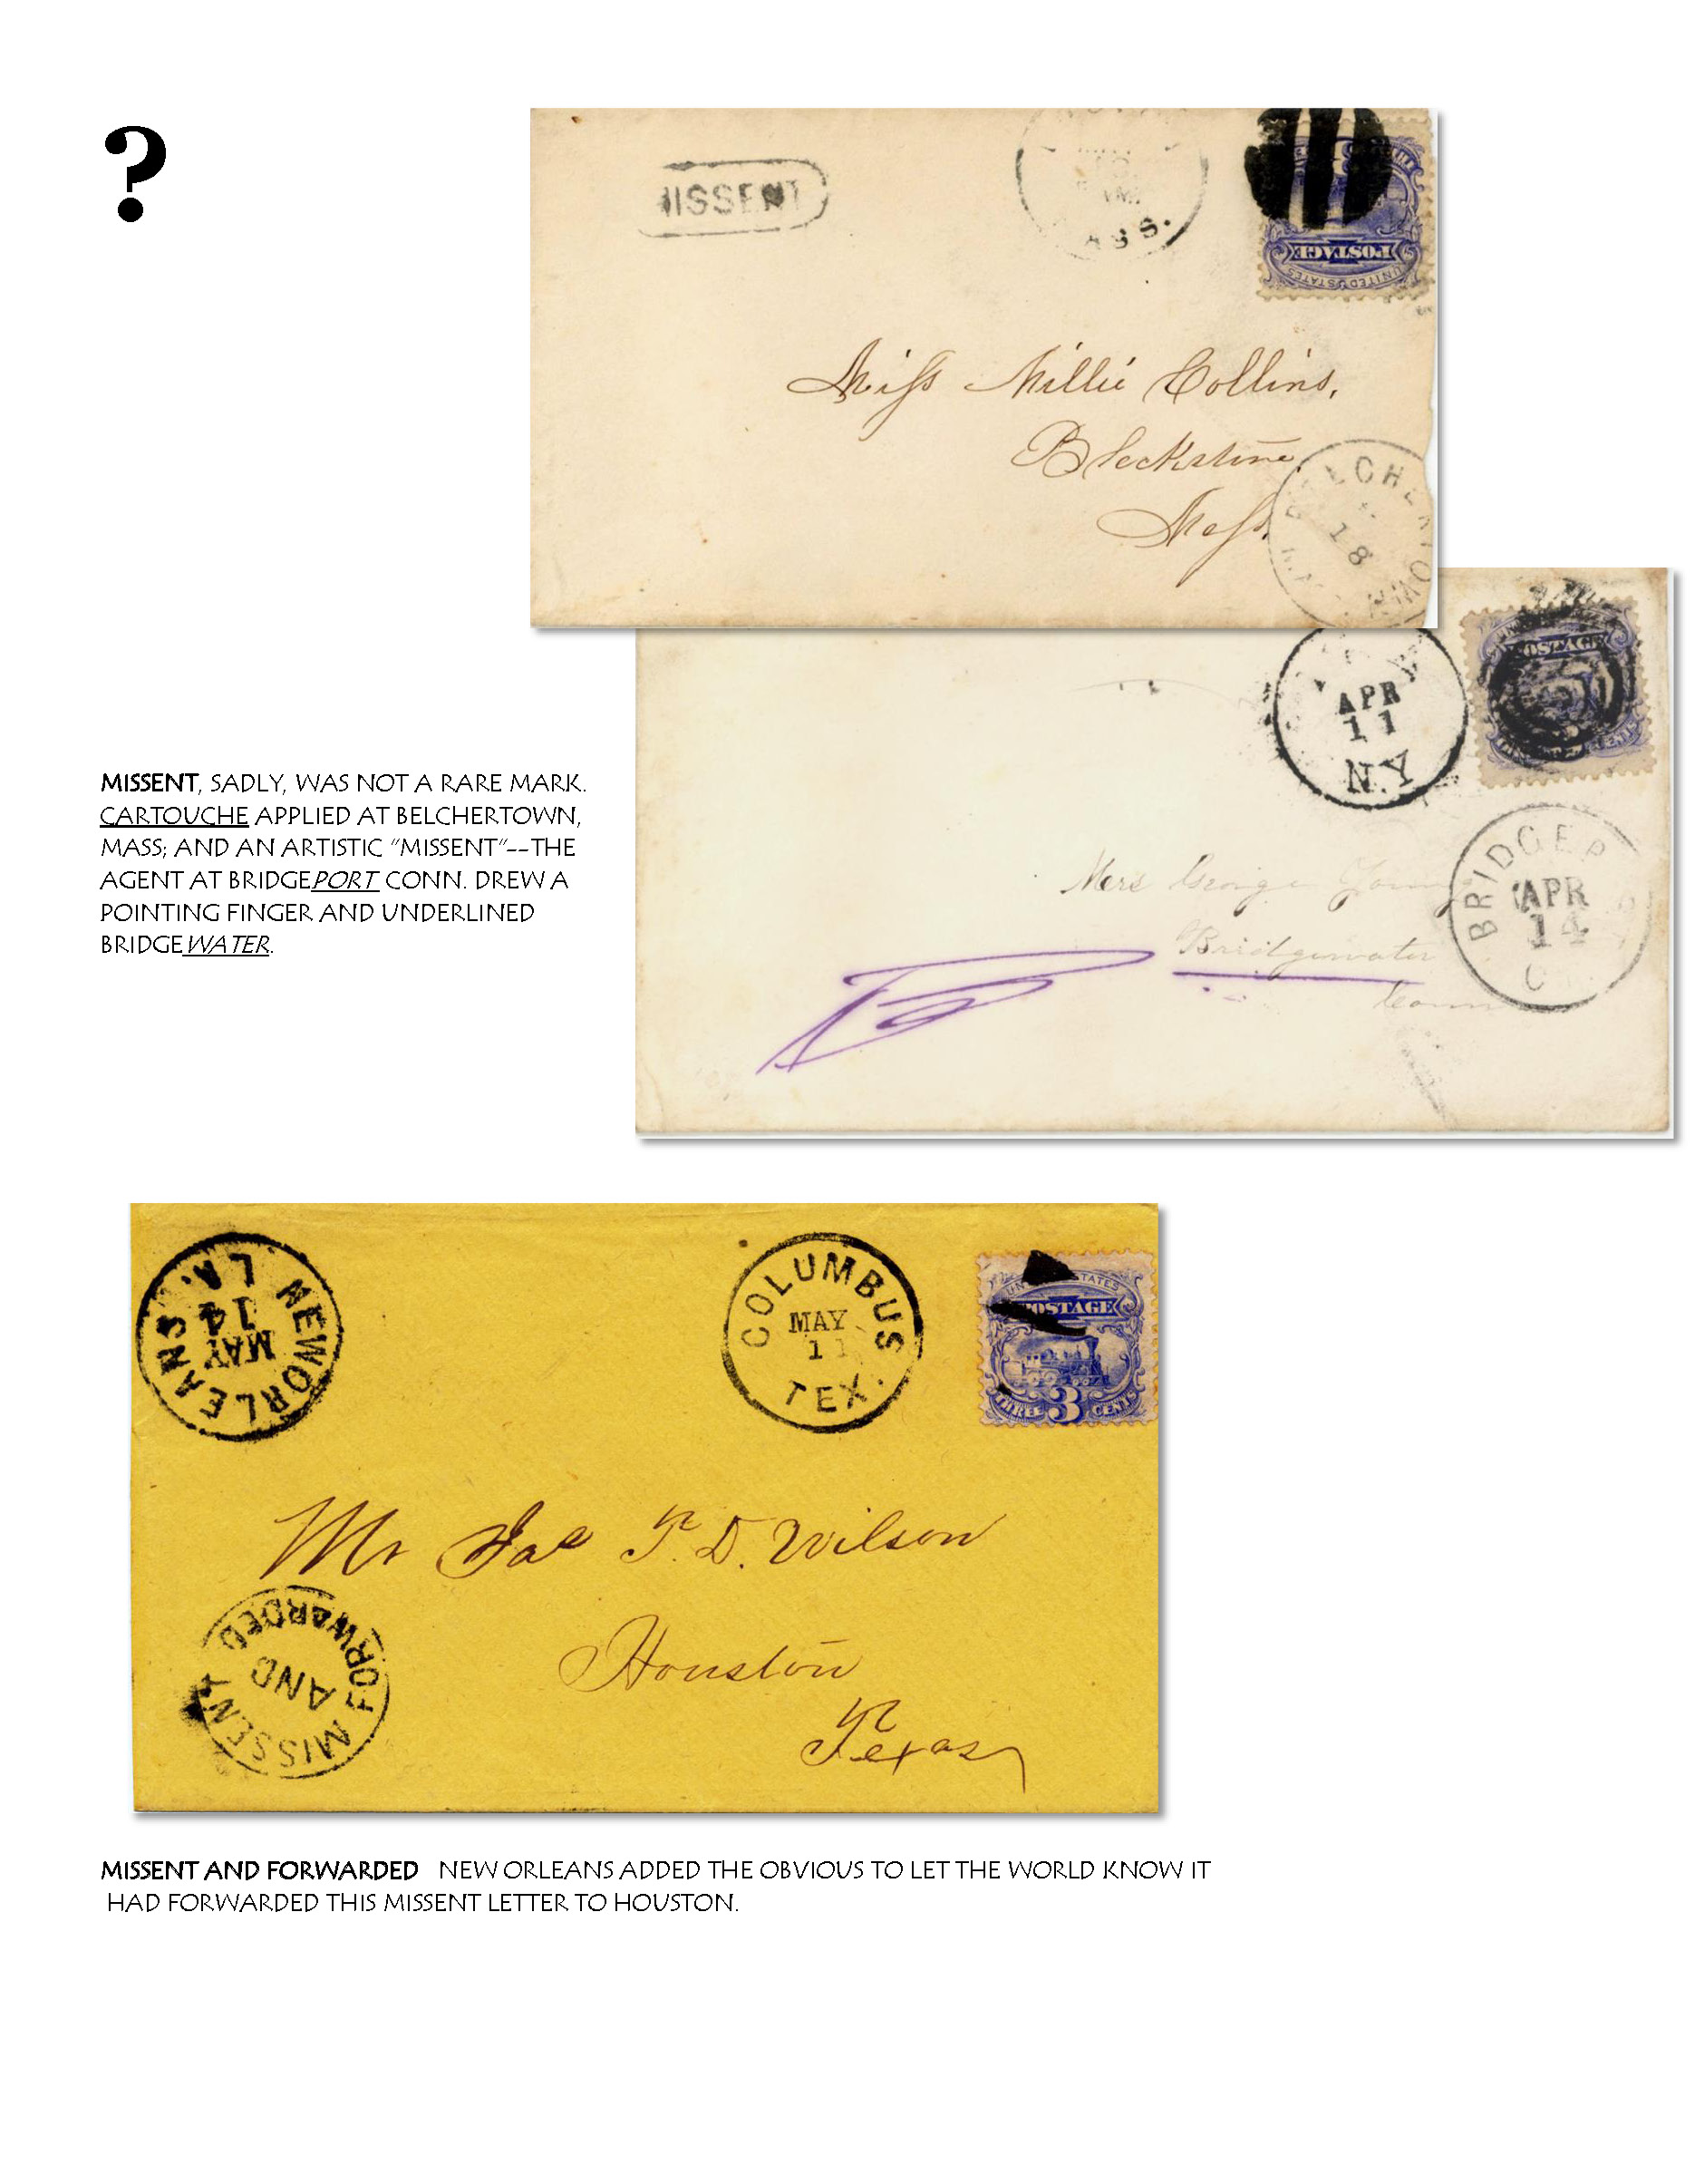 ?
MISSENT
ASS.
POSTAGE
UNITED STATES
Miss Millie Collins,
Blackstone
Mass.
BELCHERTOWN
18
MASS
MISSENT, SADLY, WAS NOT A RARE MARK.
CARTOUCHE APPLIED AT BELCHERTOWN,
MASS; AND AN ARTISTIC “MISSENT”--THE
AGENT AT BRIDGEPORT CONN. DREW A
POINTING FINGER AND UNDERLINED
BRIDGEWATER.
APR
11
N.Y
POSTAGE
CENTS
Mrs George
Bridgewater
Conn
BRIDGEP
APR
14
C
NEW ORLEANS
MAY
14
LA.
COLUMBUS
MAY
11
TEX.
UNITED STATES
POSTAGE
THREE 3 CENTS
Mr Jas T. D. Wilson
Houston
Texas
MISSENT
AND
FORWARDED
MISSENT AND FORWARDED NEW ORLEANS ADDED THE OBVIOUS TO LET THE WORLD KNOW IT
HAD FORWARDED THIS MISSENT LETTER TO HOUSTON.